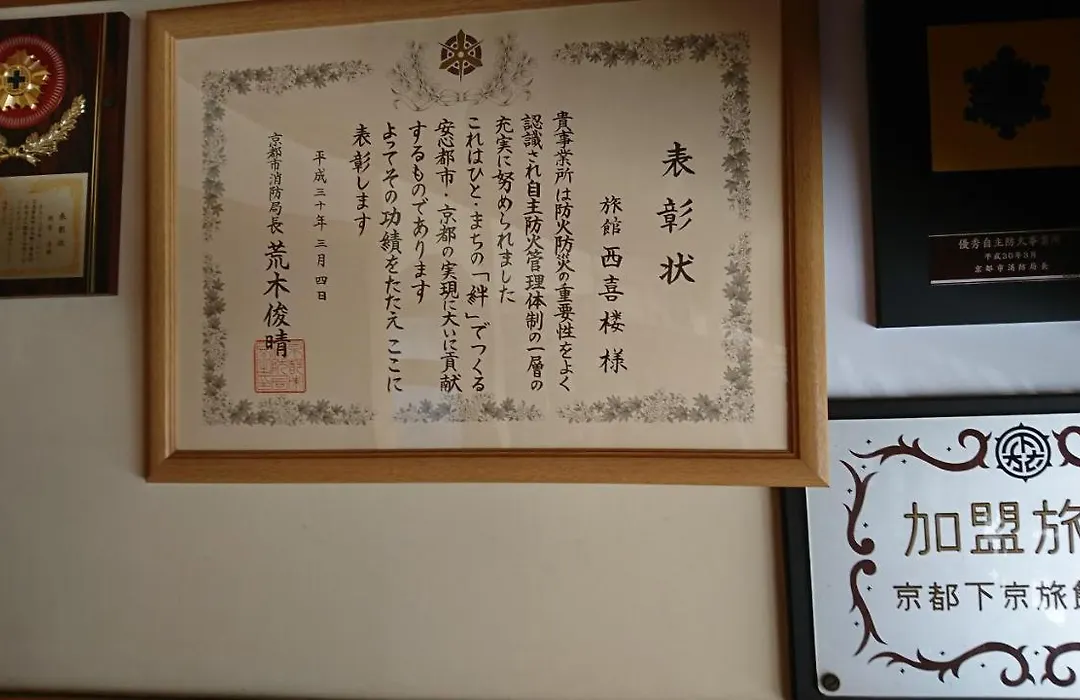 表彰状
旅館 西喜楼 様
貴事業所は防火防災の重要性をよく
認識され自主防火管理体制の一層の
充実に努められました
これはひと・まちの「絆」でつくる
安心都市・京都の実現に大いに貢献
するものであります
よってその功績をたたえ ここに
表彰します
平成三十年 三月 四日
京都市消防局長 荒木俊晴
優秀自主防火事業所
平成30年3月
京都市消防局長
加盟旅
京都下京旅館
表彰状